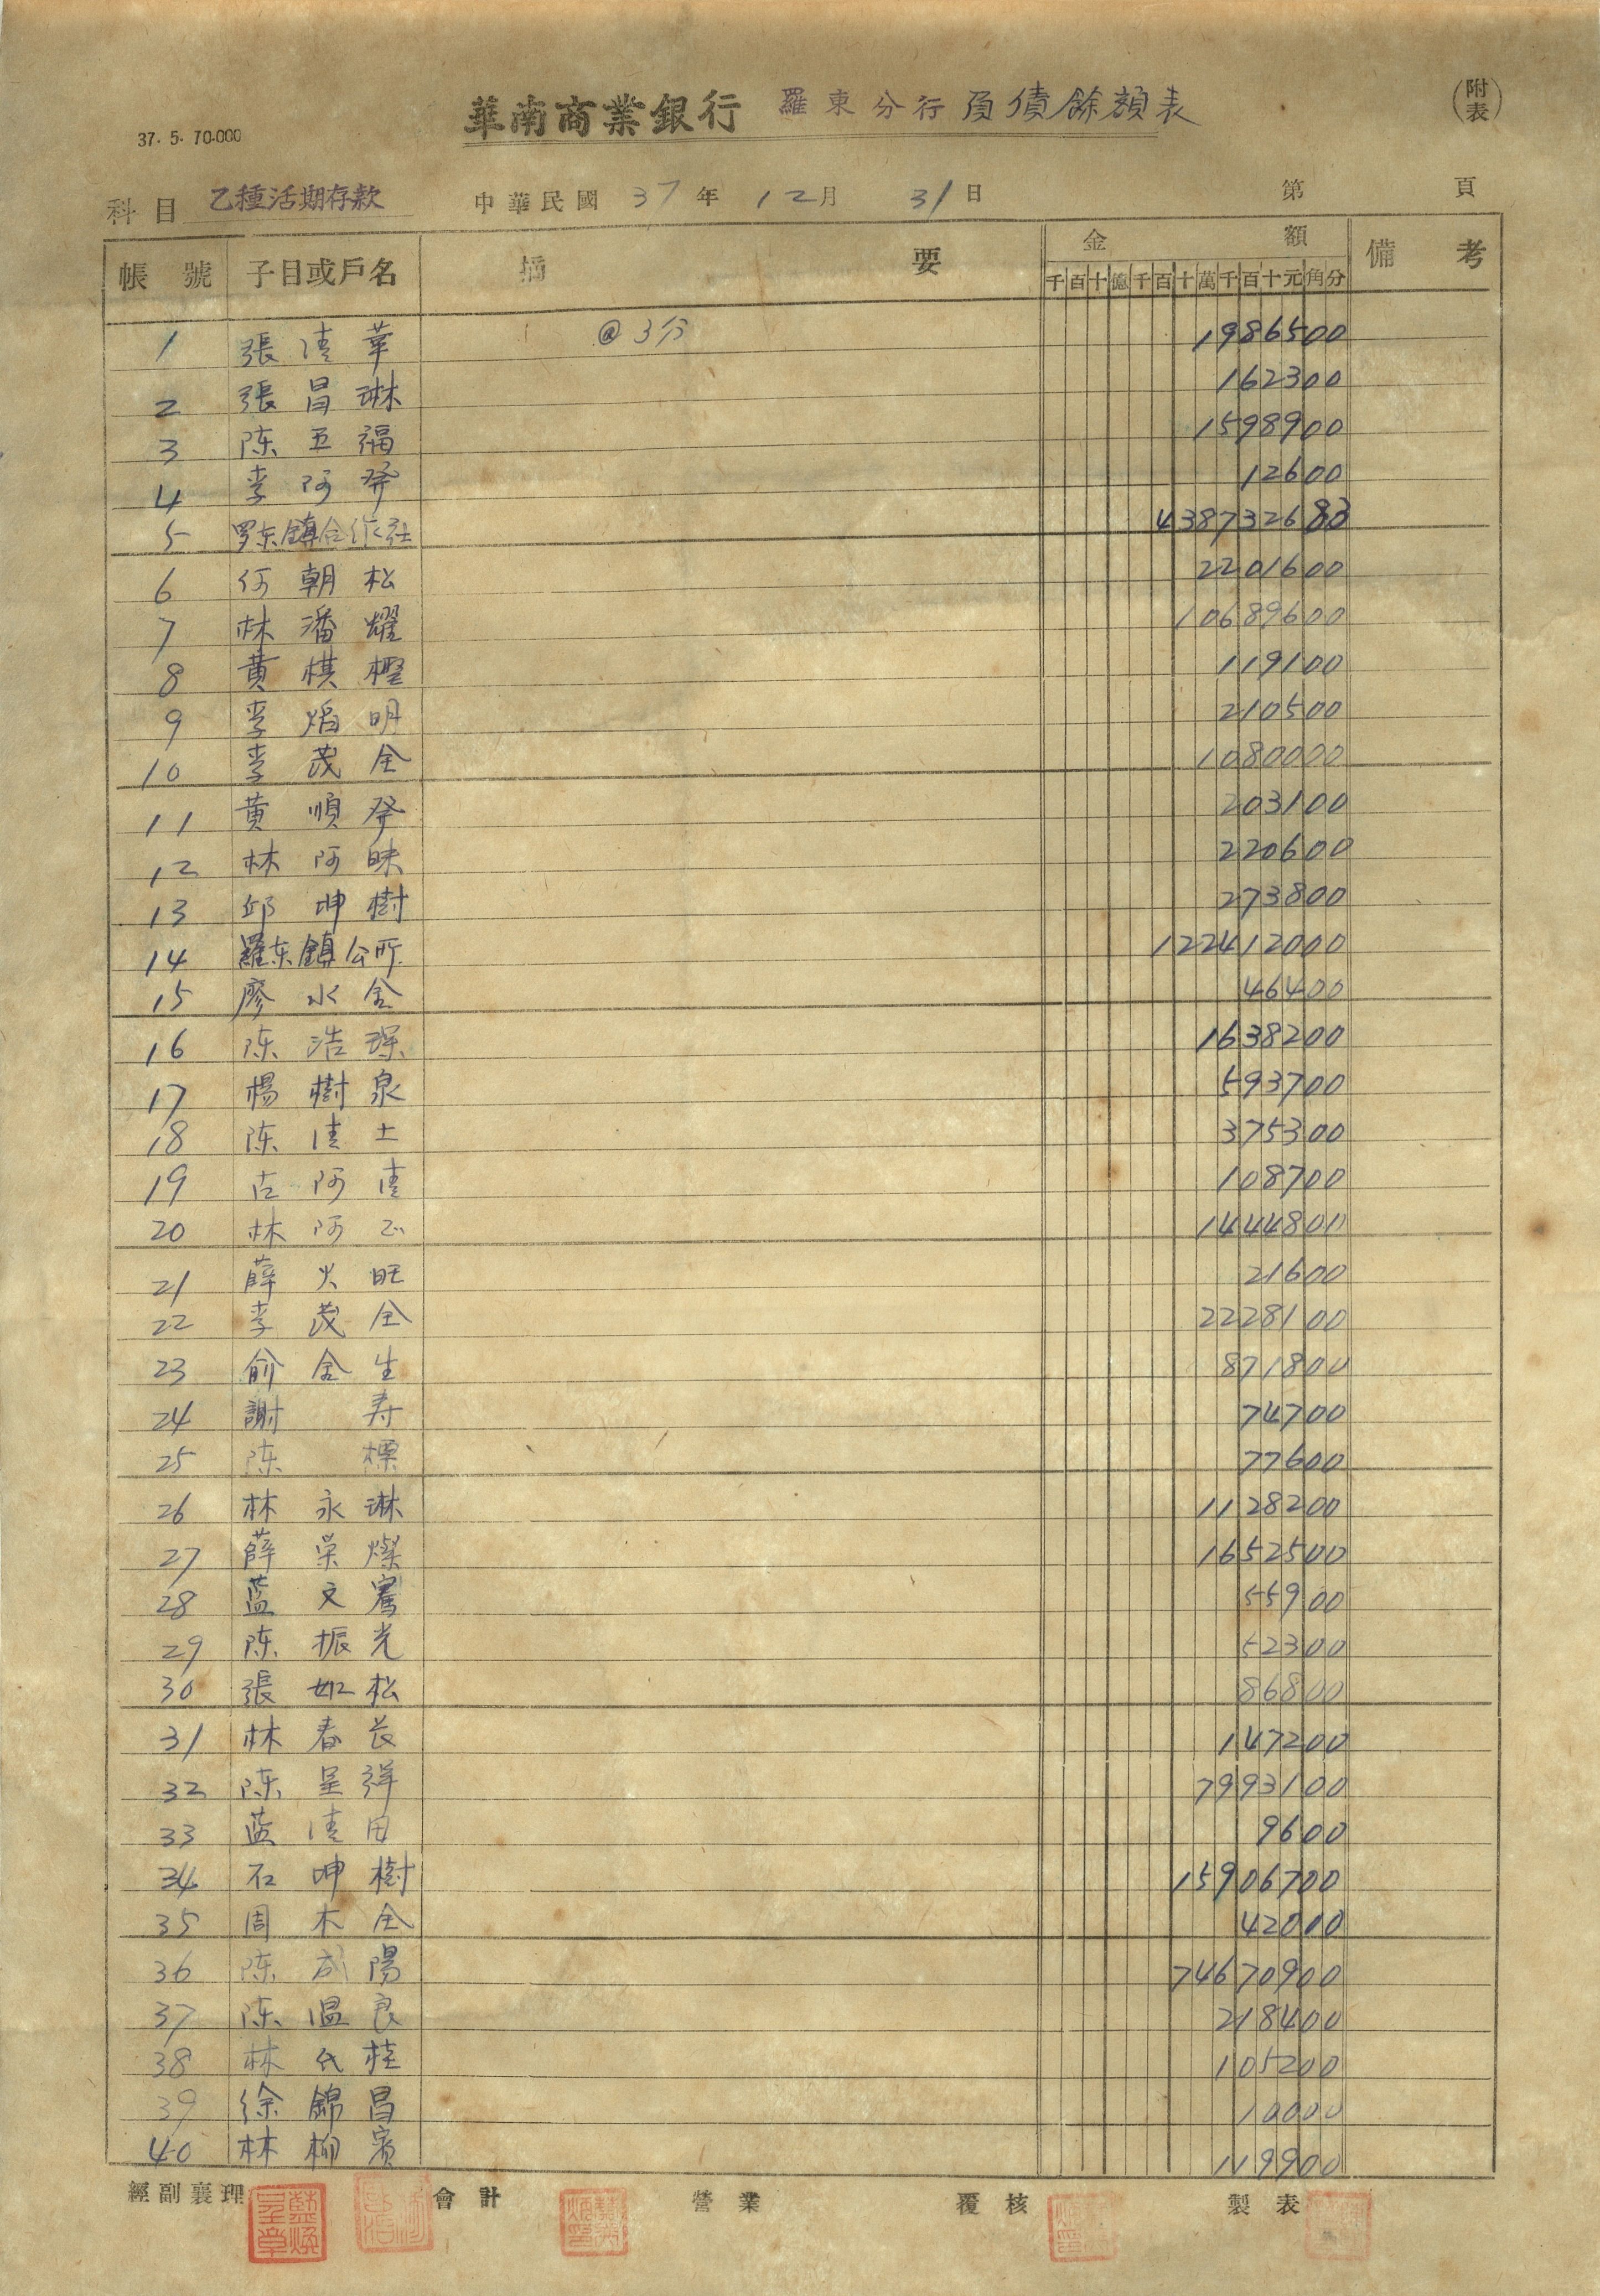 (附表)
華南商業銀行 羅東分行負債餘額表
37. 5. 70.000
科目 乙種活期存款 中華民國 37年 12月 31日 第 頁
帳號 子目或戶名 摘要 金額 備考
千百十億千百十萬千百十元角分
1 張清華 @3分 1986500
2 張昌琳 162300
3 陈五福 1598900
4 李阿発 12600
5 罗东鎮合作社 438732683
6 何朝松 2201600
7 林潘耀 10689600
8 黄棋樫 119100
9 李焰明 210500
10 李茂全 1080000
11 黄順発 203100
12 林阿昧 220600
13 邱坤樹 273800
14 羅东鎮公所 122412000
15 廖水金 46400
16 陈浩琛 1638200
17 楊樹泉 593700
18 陈清土 375300
19 古阿清 108700
20 林阿正 1444800
21 薛火旺 21600
22 李茂全 2228100
23 俞金生 871800
24 謝寿 74700
25 陈標 77600
26 林永琳 1128200
27 薛荣燦 1652500
28 蓝文騫 55900
29 陈振光 52300
30 張如松 86800
31 林春长 147200
32 陈呈祥 7993100
33 蓝清田 9600
34 石坤樹 15906700
35 周木全 42000
36 陈成陽 74670900
37 陈温良 218400
38 林氏桂 105200
39 徐錦昌 10000
40 林柳賓 119900
經副襄理 會計 營業 覆核 製表